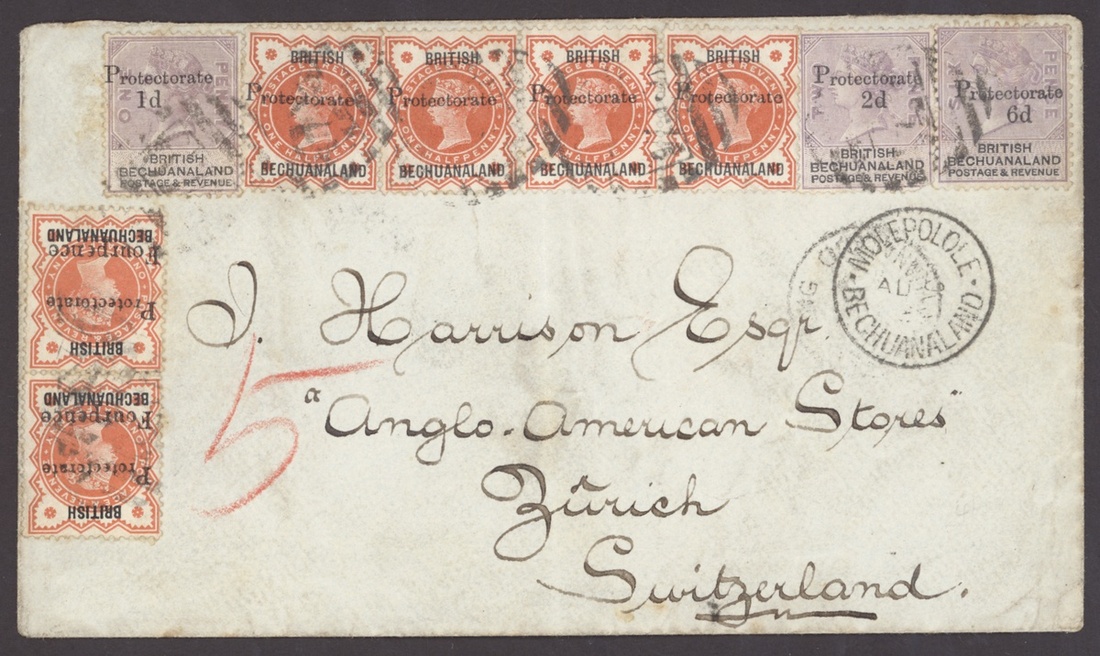 Protectorate
1d
BRITISH
BECHUANALAND
POSTAGE & REVENUE
BRITISH
Protectorate
ONE HALFPENNY
BECHUANALAND
BRITISH
Protectorate
ONE HALFPENNY
BECHUANALAND
BRITISH
Protectorate
ONE HALFPENNY
BECHUANALAND
BRITISH
Protectorate
ONE HALFPENNY
BECHUANALAND
Protectorate
2d
BRITISH
BECHUANALAND
POSTAGE & REVENUE
Protectorate
6d
BRITISH
BECHUANALAND
POSTAGE & REVENUE
BRITISH
Protectorate
Fourpence
BECHUANALAND
BRITISH
Protectorate
Fourpence
BECHUANALAND
MOLEPOLOLE
AU
BECHUANALAND
J. Harrison Esqr.
5
"Anglo-American Stores"
Zürich
Switzerland.